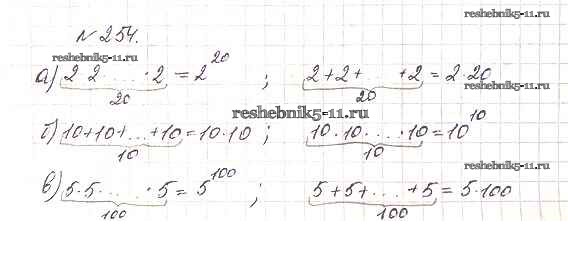 №254.
reshebnik5-11.ru
reshebnik5-11.ru
а) 2 2 ... · 2 = 2²⁰ ; 2+2+ ... +2 = 2·20
20 20
reshebnik5-11.ru
reshebnik5-11.ru
б) 10+10+...+10=10·10 ; 10·10· ... ·10=10¹⁰
10 10
reshebnik5-11.ru
в) 5·5 ... · 5 = 5¹⁰⁰ ; 5+5+ ... +5 = 5·100
100 100